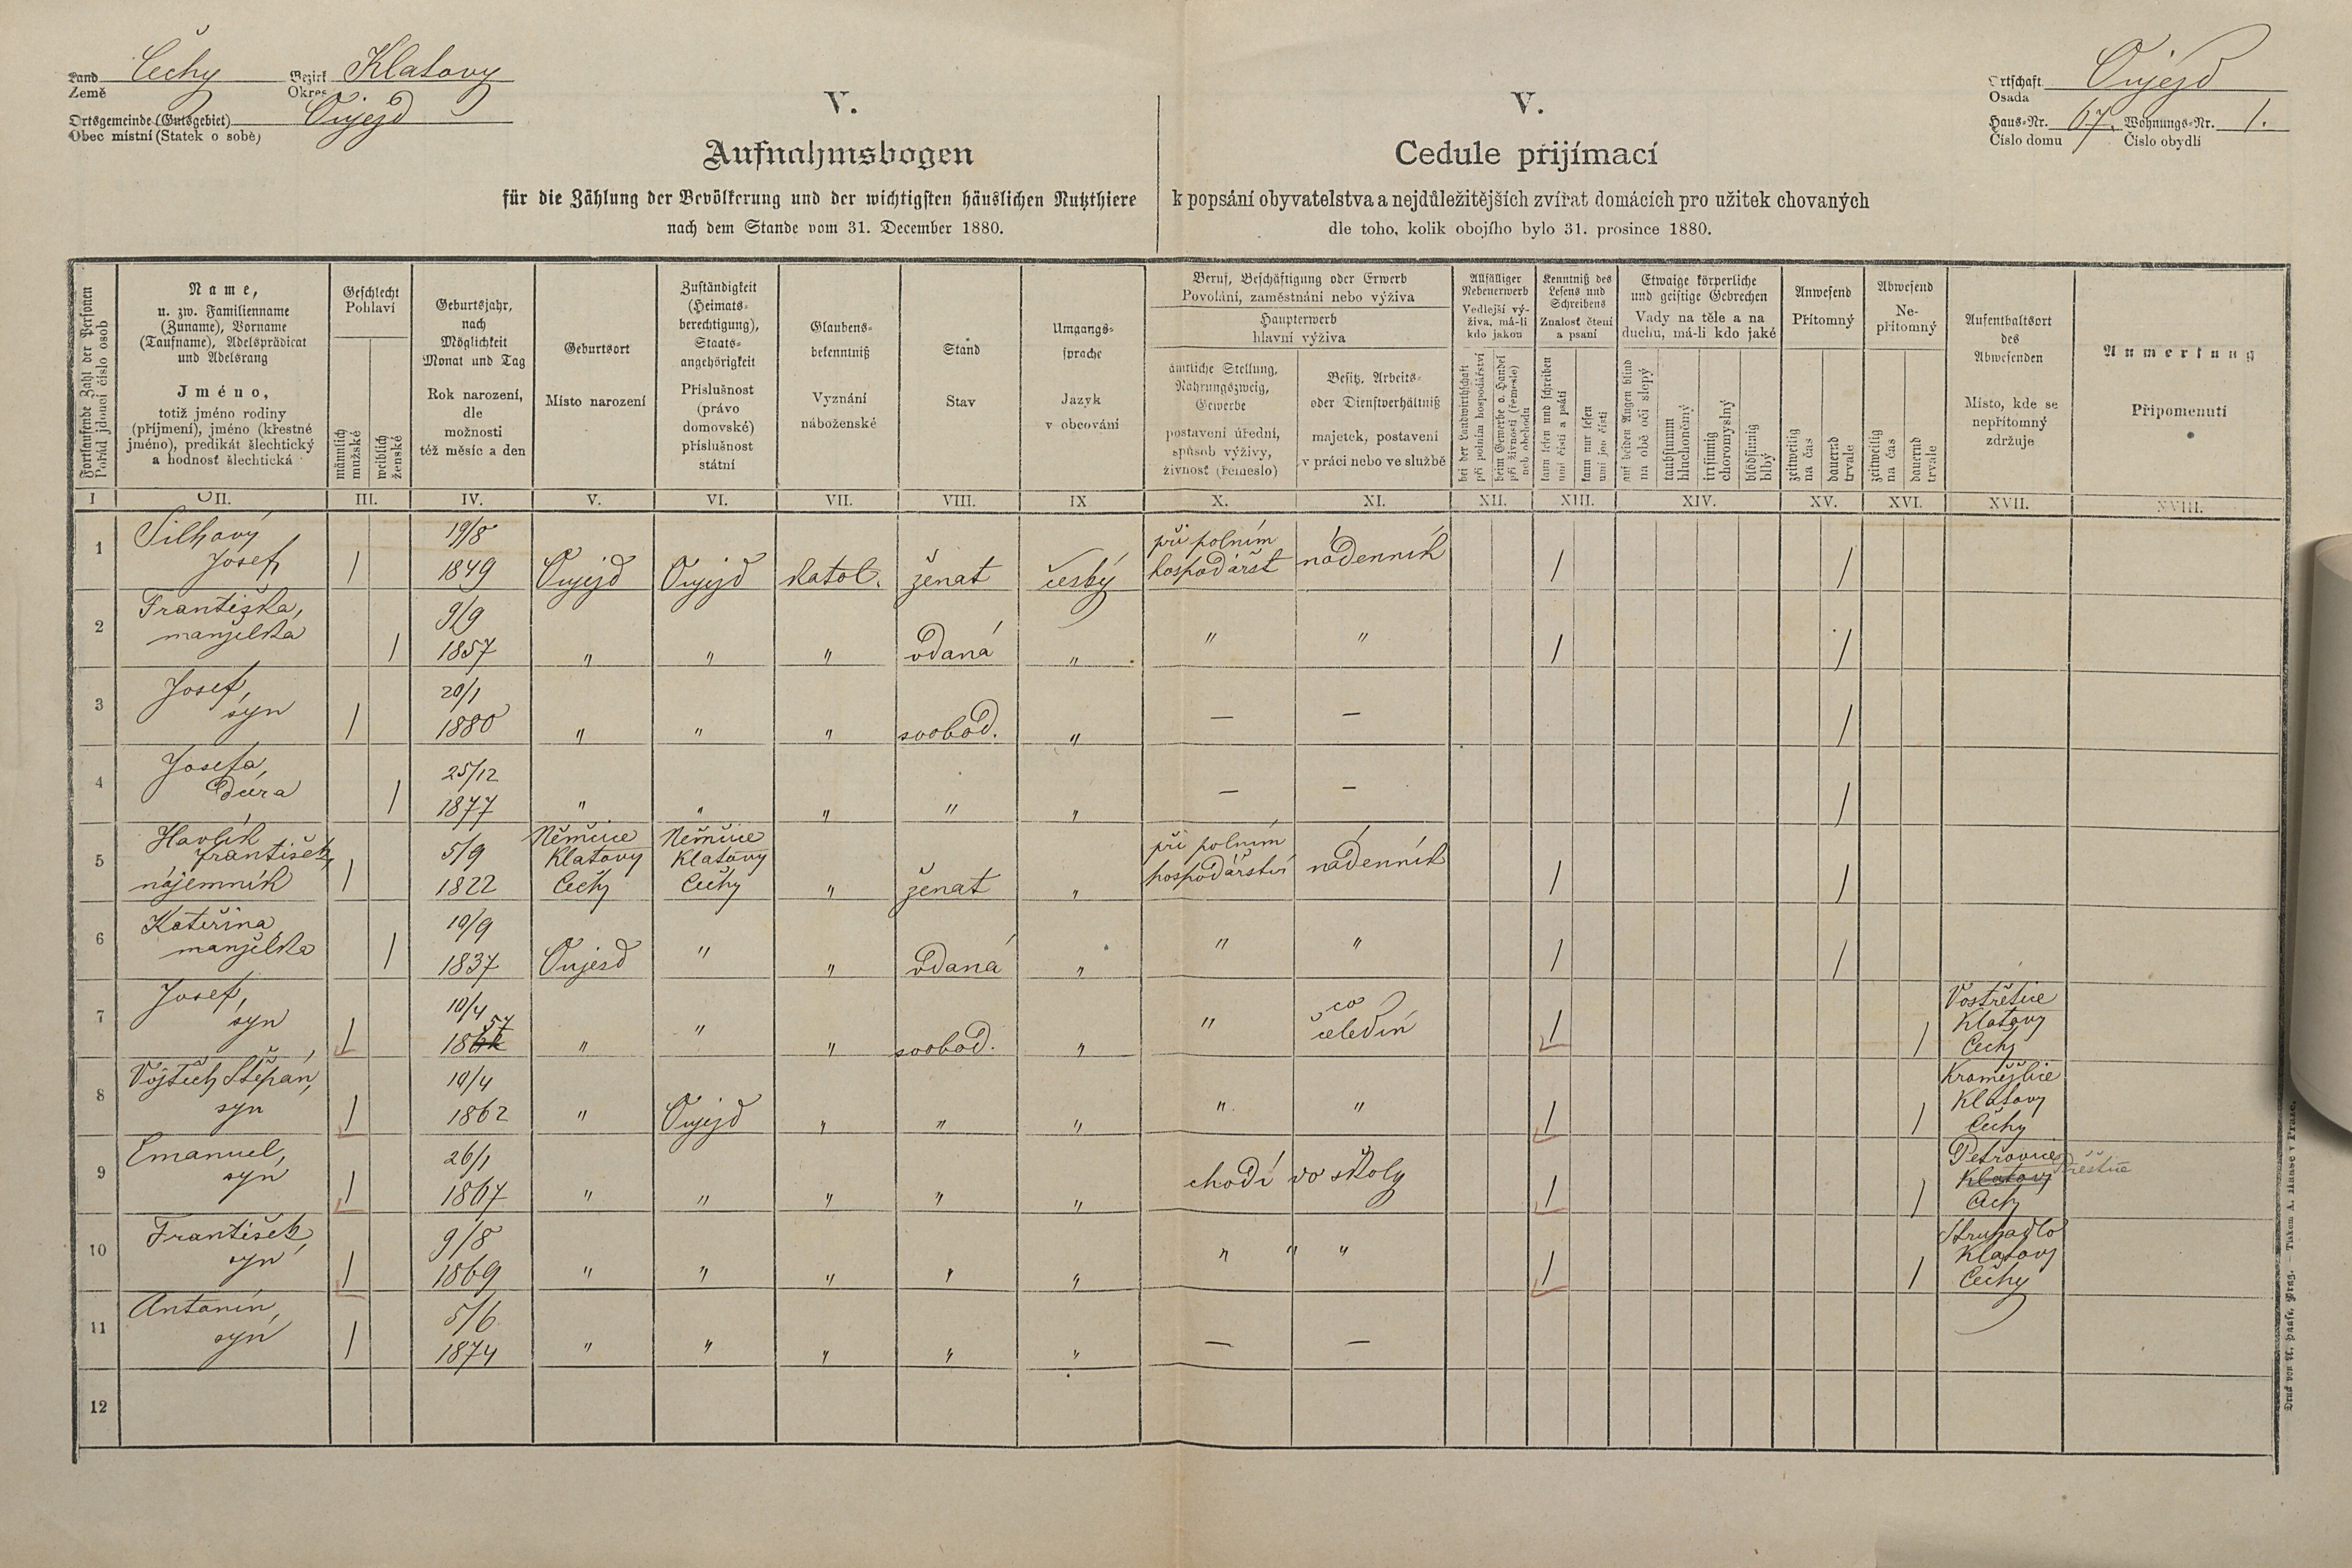 Land Čechy Bezirk Klatovy
Země Okres
Ortsgemeinde (Gutsgebiet) Oujezd
Obec místní (Statek o sobě)
V.
Aufnahmsbogen
für die Zählung der Bevölkerung und der wichtigsten häuslichen Nutzthiere
nach dem Stande vom 31. December 1880.
V.
Cedule přijímací
k popsání obyvatelstva a nejdůležitějších zvířat domácích pro užitek chovaných
dle toho, kolik obojího bylo 31. prosince 1880.
Ortschaft Oujezd
Osada
Haus-Nr. 67. Wohnungs-Nr. 1.
Číslo domu Číslo obydlí
Fortlaufende Zahl der Personen
Pořád jdoucí číslo osob
Name,
u. zw. Familienname
(Zuname), Vorname
(Taufname), Adelsprädicat
und Adelsrang
Jméno,
totiž jméno rodiny
(příjmení), jméno (křestné
jméno), predikát šlechtický
a hodnosť šlechtická
Geschlecht
Pohlaví
männlich
mužské
weiblich
ženské
Geburtsjahr,
nach
Möglichkeit
Monat und Tag
Rok narození,
dle
možnosti
též měsíc a den
Geburtsort
Místo narození
Zuständigkeit
(Heimats-
berechtigung),
Staats-
angehörigkeit
Příslušnost
(právo
domovské)
příslušnost
státní
Glaubens-
bekenntniß
Vyznání
náboženské
Stand
Stav
Umgangs-
sprache
Jazyk
v obcování
Beruf, Beschäftigung oder Erwerb
Povolání, zaměstnání nebo výživa
Haupterwerb
hlavní výživa
ämtliche Stellung,
Nahrungszweig,
Gewerbe
postavení úřední,
spůsob výživy,
živnosť (řemeslo)
Besitz, Arbeits-
oder Dienstverhältniß
majetek, postavení
v práci nebo ve službě
Allfälliger
Nebenerwerb
Vedlejší vý-
živa, má-li
kdo jakou
bei der Landwirthschaft
při polním hospodářství
beim Gewerbe o. Handel
při živnosti (řemesle)
neb obchodu
Kenntniß des
Lesens und
Schreibens
Znalosť čtení
a psaní
kann lesen und schreiben
umí čísti a psáti
kann nur lesen
umí jen čísti
Etwaige körperliche
und geistige Gebrechen
Vady na těle a na
duchu, má-li kdo jaké
auf beiden Augen blind
na obě oči slepý
taubstumm
hluchoněmý
irrsinnig
choromyslný
blödsinnig
blbý
Anwesend
Přítomný
zeitweilig
na čas
dauernd
trvale
Abwesend
Ne-
přítomný
zeitweilig
na čas
dauernd
trvale
Aufenthaltsort
des
Abwesenden
Místo, kde se
nepřítomný
zdržuje
Anmerkung
Připomenutí
I II. III. IV. V. VI. VII. VIII. IX X. XI. XII. XIII. XIV. XV. XVI. XVII. XVIII.
1 Silhavý 19/8 při polním
Josef 1 1849 Oujezd Oujezd katol. ženat český hospodářst nádenník 1 1
2 Františka, 9/9
manželka 1 1857 " " " vdaná " " " 1 1
3 Josef, 20/1
syn 1 1880 " " " svobod. " — — 1
4 Josefa, 25/12
dcera 1 1877 " " " " " — — 1
5 Havlík Němčice Němčice při polním
František, 5/9 Klatovy Klatovy
nájemník 1 1822 Čechy Čechy " ženat " hospodářství nádenník 1 1
6 Kateřina 10/9
manželka 1 1837 Oujezd " " vdaná " " " 1 1
7 Josef, 10/4 57 co Vostřetice
syn 1 186 " " " svobod. " " čeledín 1 1 Klatovy
Čechy
8 Vojtěch Štěpán, 10/4 Kroměždice
syn 1 1862 " Oujezd " " " " " 1 1 Klatovy
Čechy
9 Emanuel, 26/1 Petrovice
syn 1 1867 " " " " " chodí do školy 1 1 Klatovy Přeštice
Čechy
10 František, 9/8 Struhadlo
syn 1 1869 " " " " " " " " 1 1 Klatovy
Čechy
11 Antonín, 5/6
syn 1 1874 " " " " " — —
12
Druck von A. Haase, Prag. — Tiskem A. Haase v Praze.